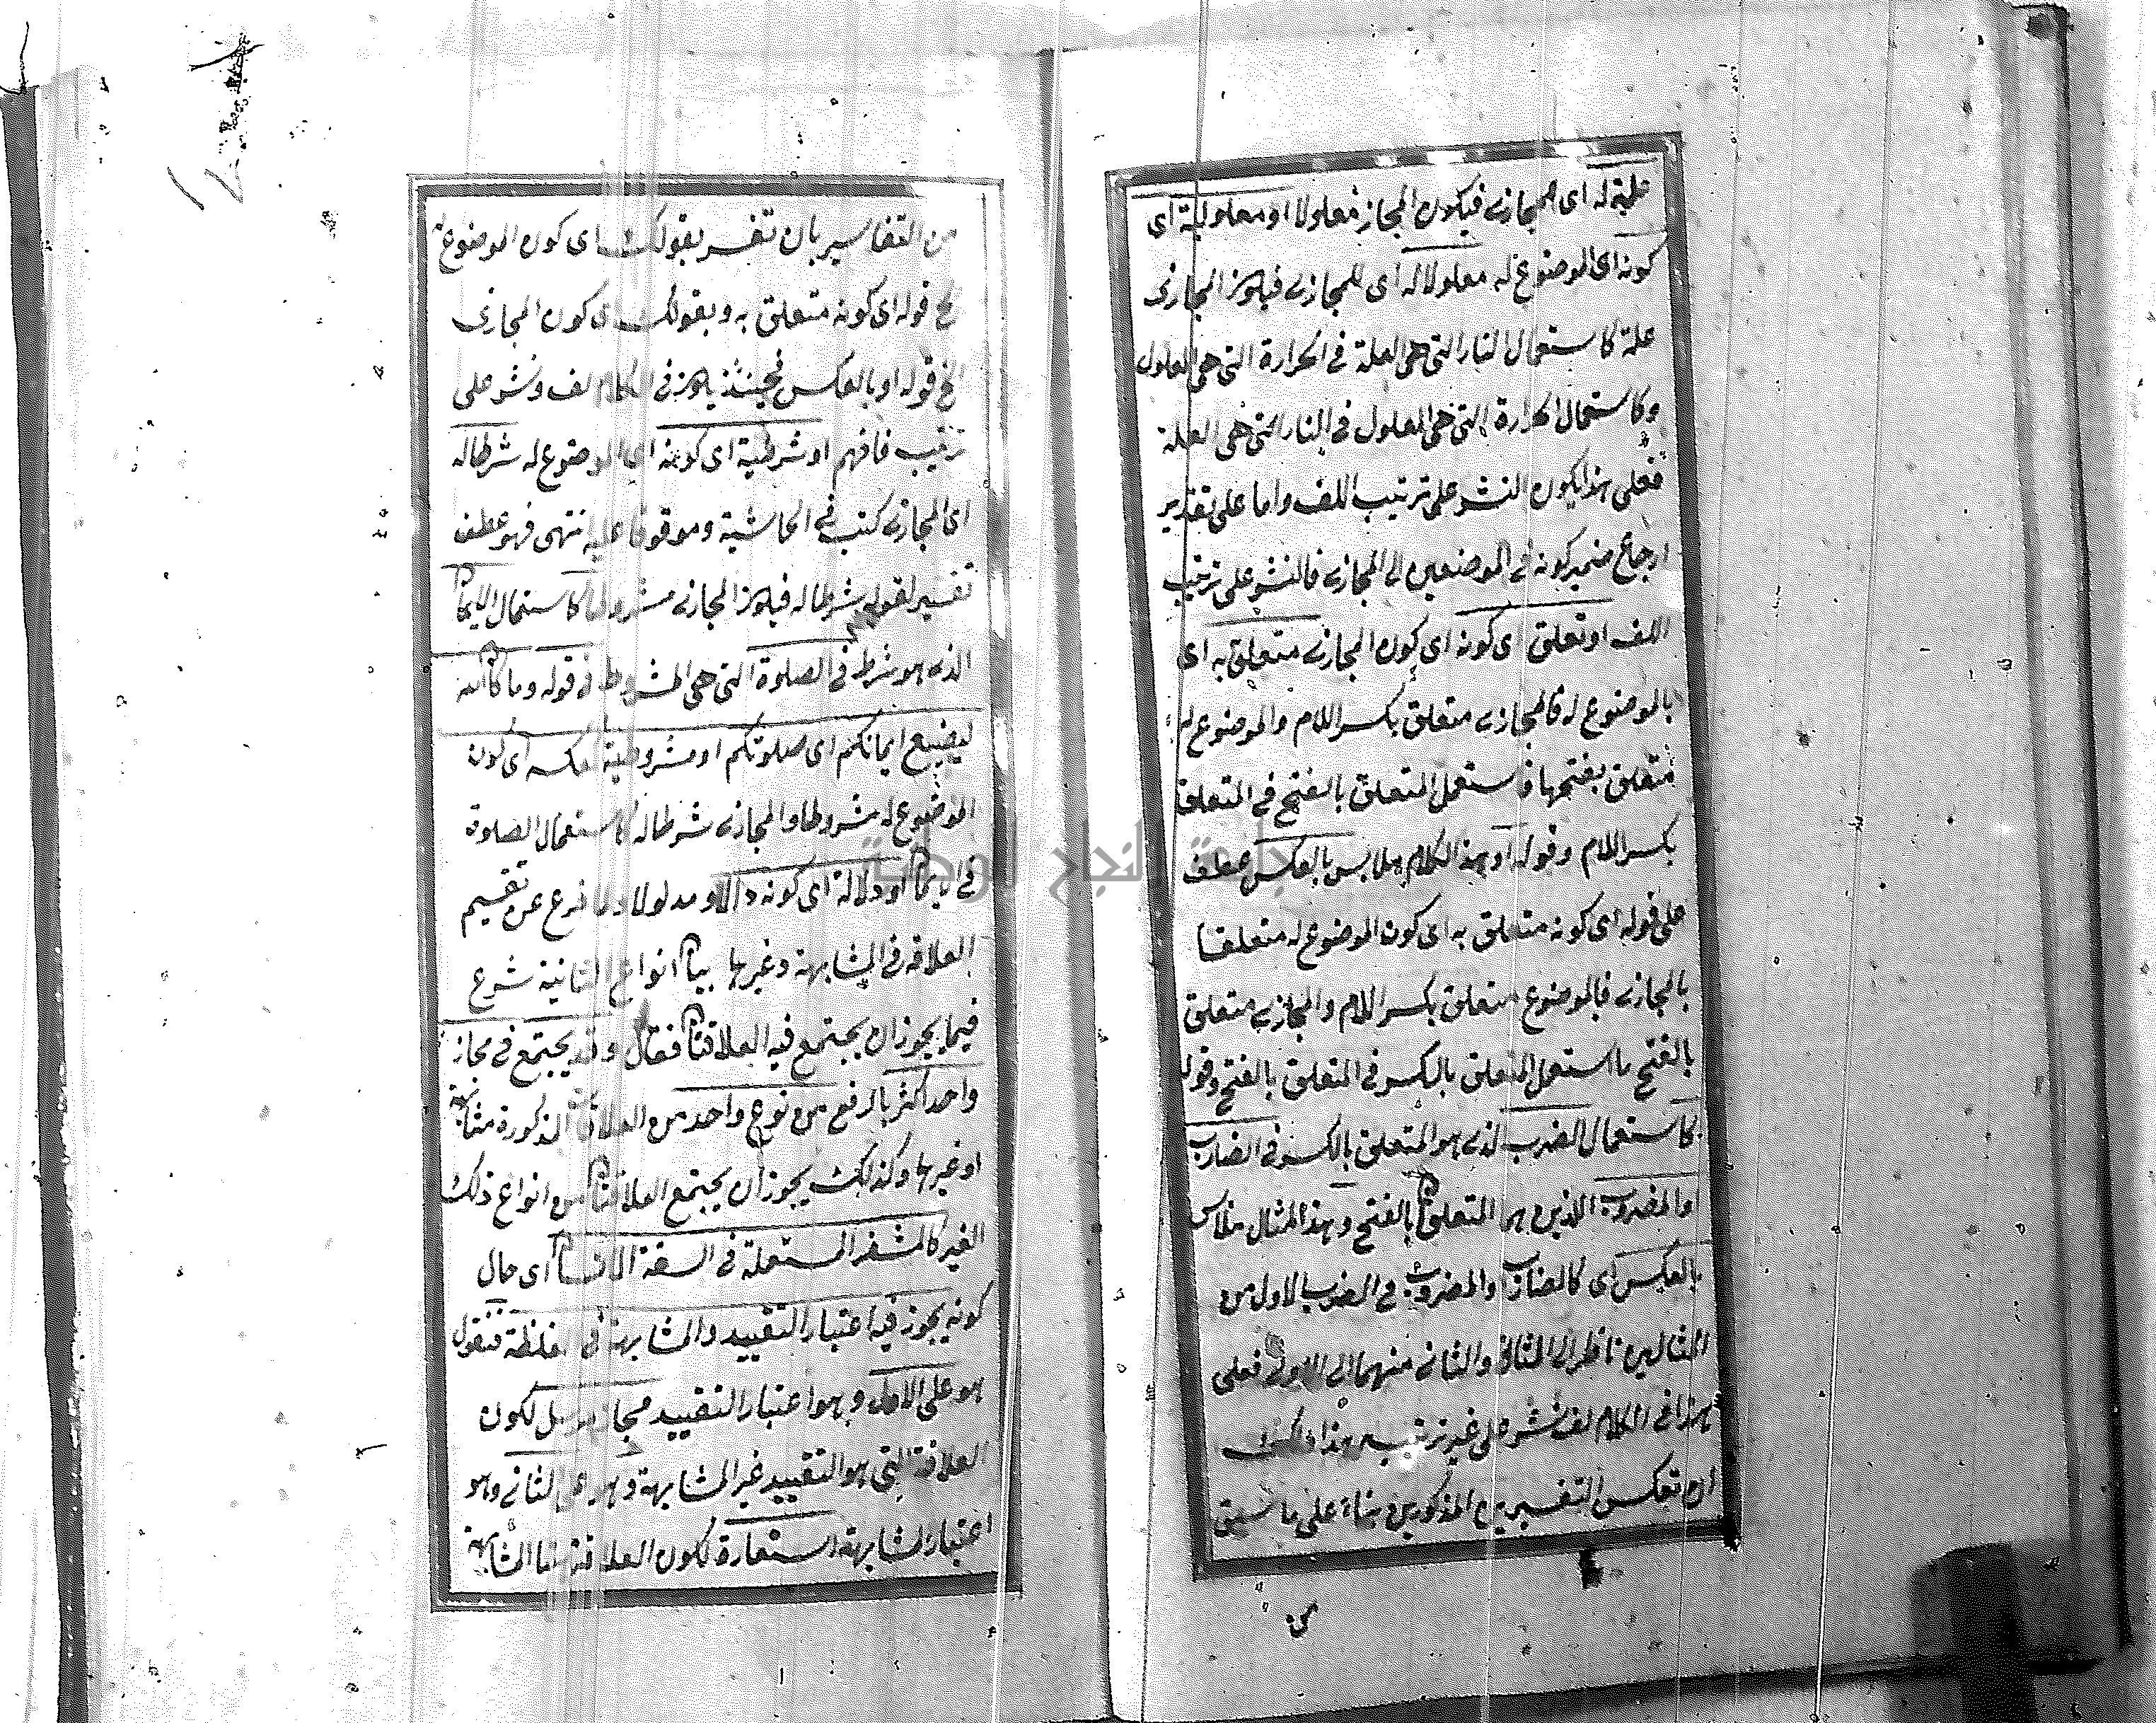 علية له اى للمجازى فيكون المجاز معلولا او معلولية اى
كونه اى الموضوع له معلولا له اى للمجازى فيكون المجازى
علة كاستعمال النار التى هى العلة فى الحرارة التى هى المعلول
وكاستعمال الحرارة التى هى المعلول فى النار التى هى العلة
فعلى هذا يكون النشر على ترتيب اللف واما على تقدير
ارجاع ضمير كونه فى الموضعين الى المجازى فالنشر على ترتيب
اللف او تعلق اى كونه اى كون المجازى متعلق به اى
بالموضوع له فالمجازى متعلق بكسر اللام والموضوع له
متعلق بفتحها فاستعمل المتعلق بالفتح فى المتعلق
بكسر اللام وقوله او هذا الكلام ملابس بالعكس عطف
على قوله اى كونه متعلق به اى كون الموضوع له متعلقا
بالمجازى فالموضوع متعلق بكسر اللام والمجازى متعلق
بالفتح فاستعمل المتعلق بالكسر فى المتعلق بالفتح وقوله
كاستعمال الضرب الذى هو المتعلق بالكسر فى الضارب
او المضروب اللذين هما المتعلقان بالفتح وهذا المثال ملابس
بالعكس اى كالضارب والمضروب فى الضرب الاول من
المثالين ناظر الى الثانى والثانى منهما الى الاول فعلى
هذا فى الكلام لف نشر على غير ترتيب هذا ولك
ان تعكس التفسيرين المذكورين بناء على ما سبق
من
من التفاسير بان تفسر بقولك اى كون الموضوع
الخ قوله اى كونه متعلق به وبقولك اى كون المجازى
الخ قوله او بالعكس فحينئذ يكون فى الكلام لف ونشر على
ترتيب فافهم او شرطية اى كونه اى الموضوع له شرطا له
اى المجازى كتب فى الحاشية وموقوفا عليه انتهى فهو عطف
تفسير لقوله شرطا له فيكون المجازى مشروطا كاستعمال الايمان
الذى هو شرط فى الصلوة التى هى المشروط فى قوله وما كان الله
ليضيع ايمانكم اى صلوتكم او مشروطية بعكسه اى كون
الموضوع له مشروطا والمجازى شرطا له كاستعمال الصلوة
فى الايمان او دلالة اى كونه دالا او مدلولا ولما فرغ عن تقسيم
العلاقة فى المشابهة وغيرها بيان انواع الثانية شرع
فيما يجوز ان يجتمع فيه العلاقتان فقال وقد يجتمع فى مجاز
واحد اكثر بالرفع من نوع واحد من العلاقات المذكورة مشابهة
او غيرها وكذلك يجوز ان يجتمع العلاقتان من انواع ذلك
الغير كالمشفر المستعملة فى الشفة الانسان اى حال
كونه يجوز فيه اعتبار التقييد والمشابهة فى الغلظة فنقول
هو على الاول وهو اعتبار التقييد مجاز مرسل لكون
العلاقة التى هو التقييد غير المشابهة وهو على الثانى وهو
اعتبار المشابهة استعارة لكون العلاقة هنا المشابهة
جامعة النجاح الوطنية